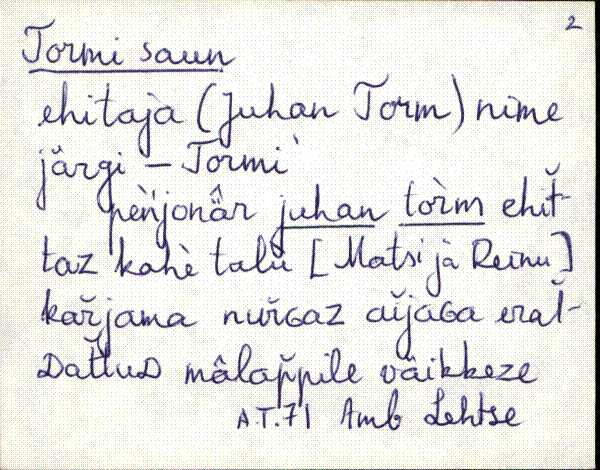 2
Tormi saun
ehitaja (Juhan Torm) nime
järgi – Tormi
pèǹjonä̂r juhan tòrm ehit̆-
taz kahè talŭ [Matsi jà Reinu]
kar̆jama nur̆Gaz aĭjaGa eral̆-
Dat̆tuD mâlap̆pile väikkeze
A.T.71 Amb Lehtse